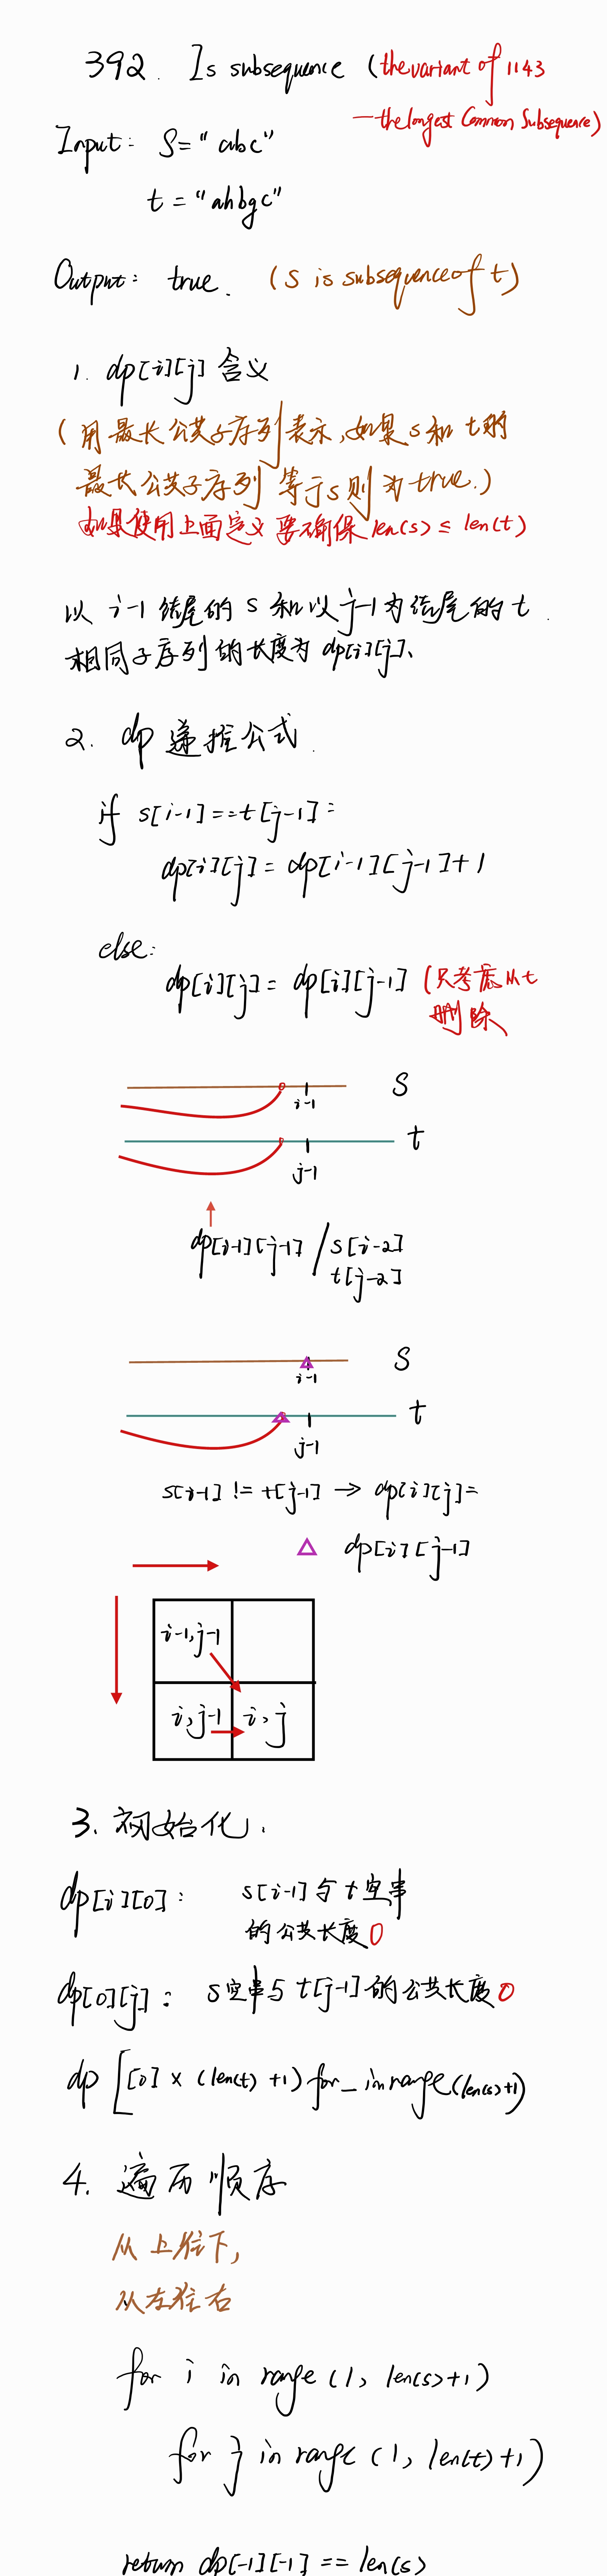 392. Is subsequence (the variant of 1143
— the longest Common Subsequence)
Input: S = "abc"
t = "ahbgc"
Output: true. (S is subsequence of t)
1. dp[i][j] 含义
(用最长公共子序列表示,如果 s 和 t 的
最长公共子序列 等于 s 则为 true.)
如果使用上面定义 要确保 len(s) ≤ len(t)
以 i-1 结尾的 s 和以 j-1 为结尾的 t
相同子序列的长度为 dp[i][j].
2. dp 递推公式.
if s[i-1] == t[j-1]:
dp[i][j] = dp[i-1][j-1] + 1
else:
dp[i][j] = dp[i][j-1] (只考虑从 t
删除
S
i-1
t
j-1
dp[i-1][j-1] / s[i-2]
t[j-2]
S
i-1
t
j-1
s[i-1] != t[j-1] → dp[i][j] =
dp[i][j-1]
i-1, j-1
i, j-1
i, j
3. 初始化.
dp[i][0]: s[i-1] 与 t 空串
的公共长度 0
dp[0][j]: s空串与 t[j-1] 的公共长度 0
dp [[0] × (len(t) +1) for _ in range(len(s)+1)
4. 遍历顺序
从上往下,
从左往右
for i in range (1, len(s)+1)
for j in range (1, len(t)+1)
return dp[-1][-1] == len(s)